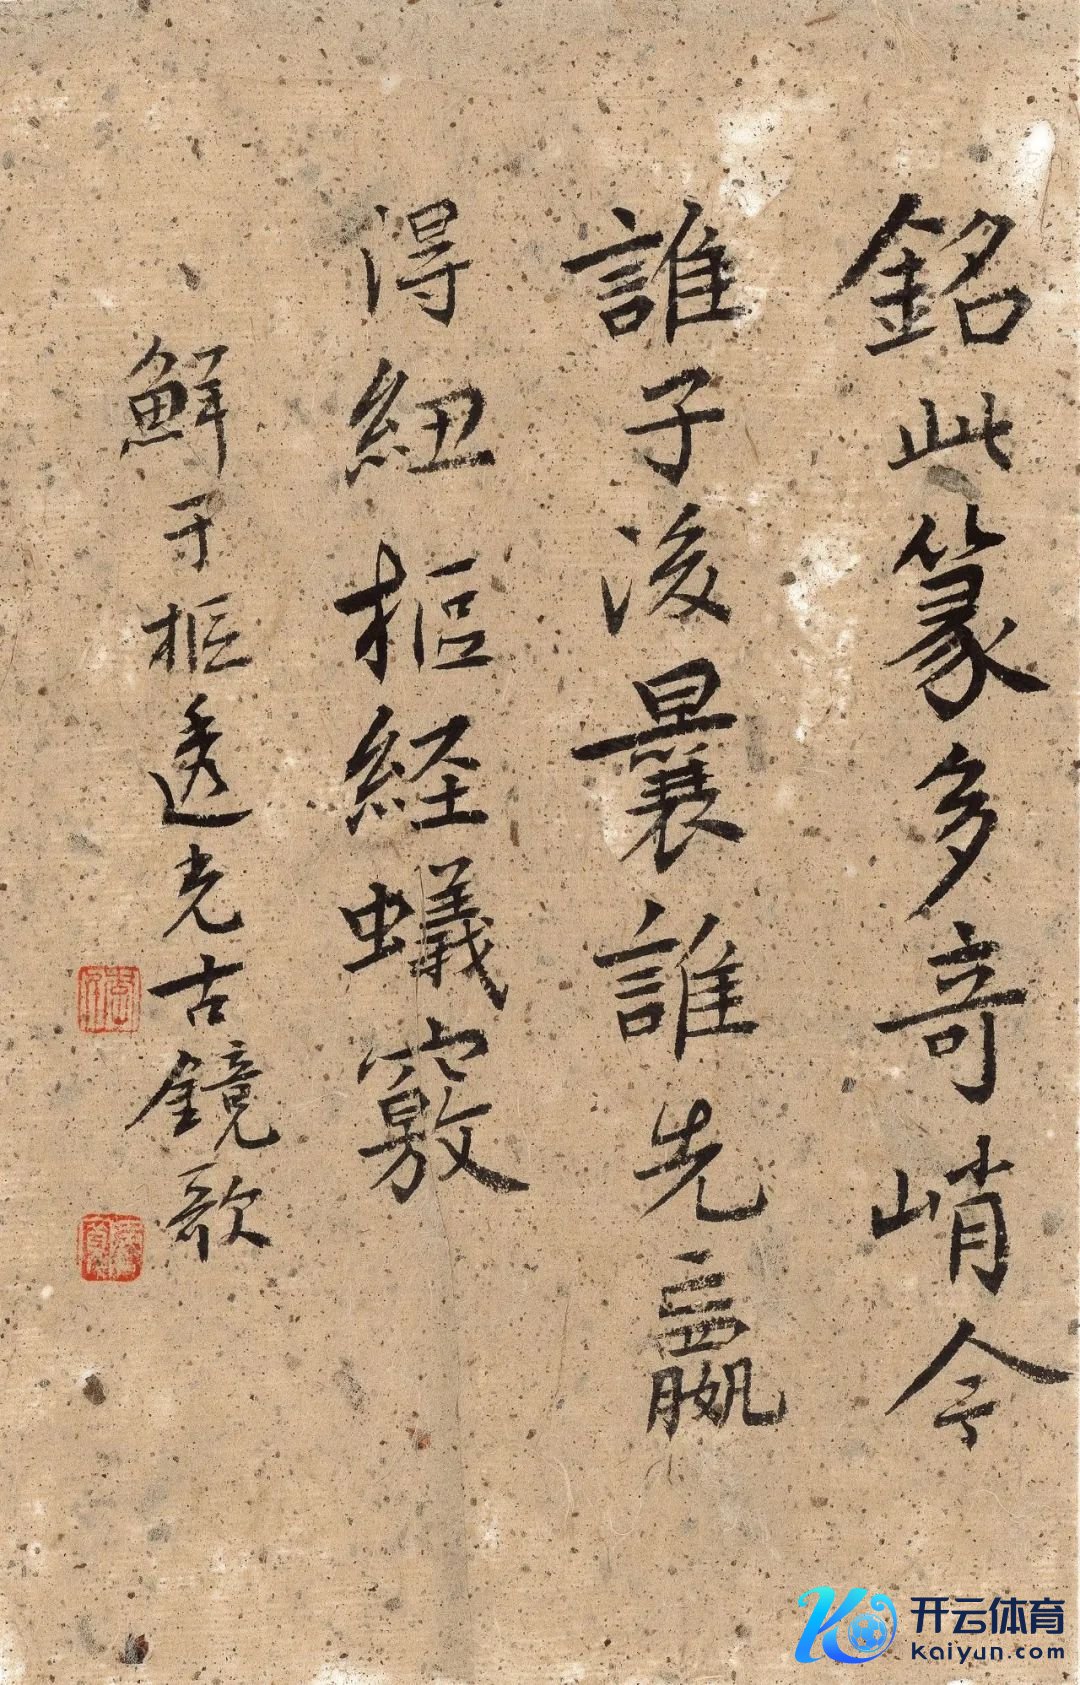 銘此篆多奇峭今
誰子後曩誰先嬴
得紐樞經蟻竅
鮮于樞透光古鏡歌
开云体育
kaiyun.com